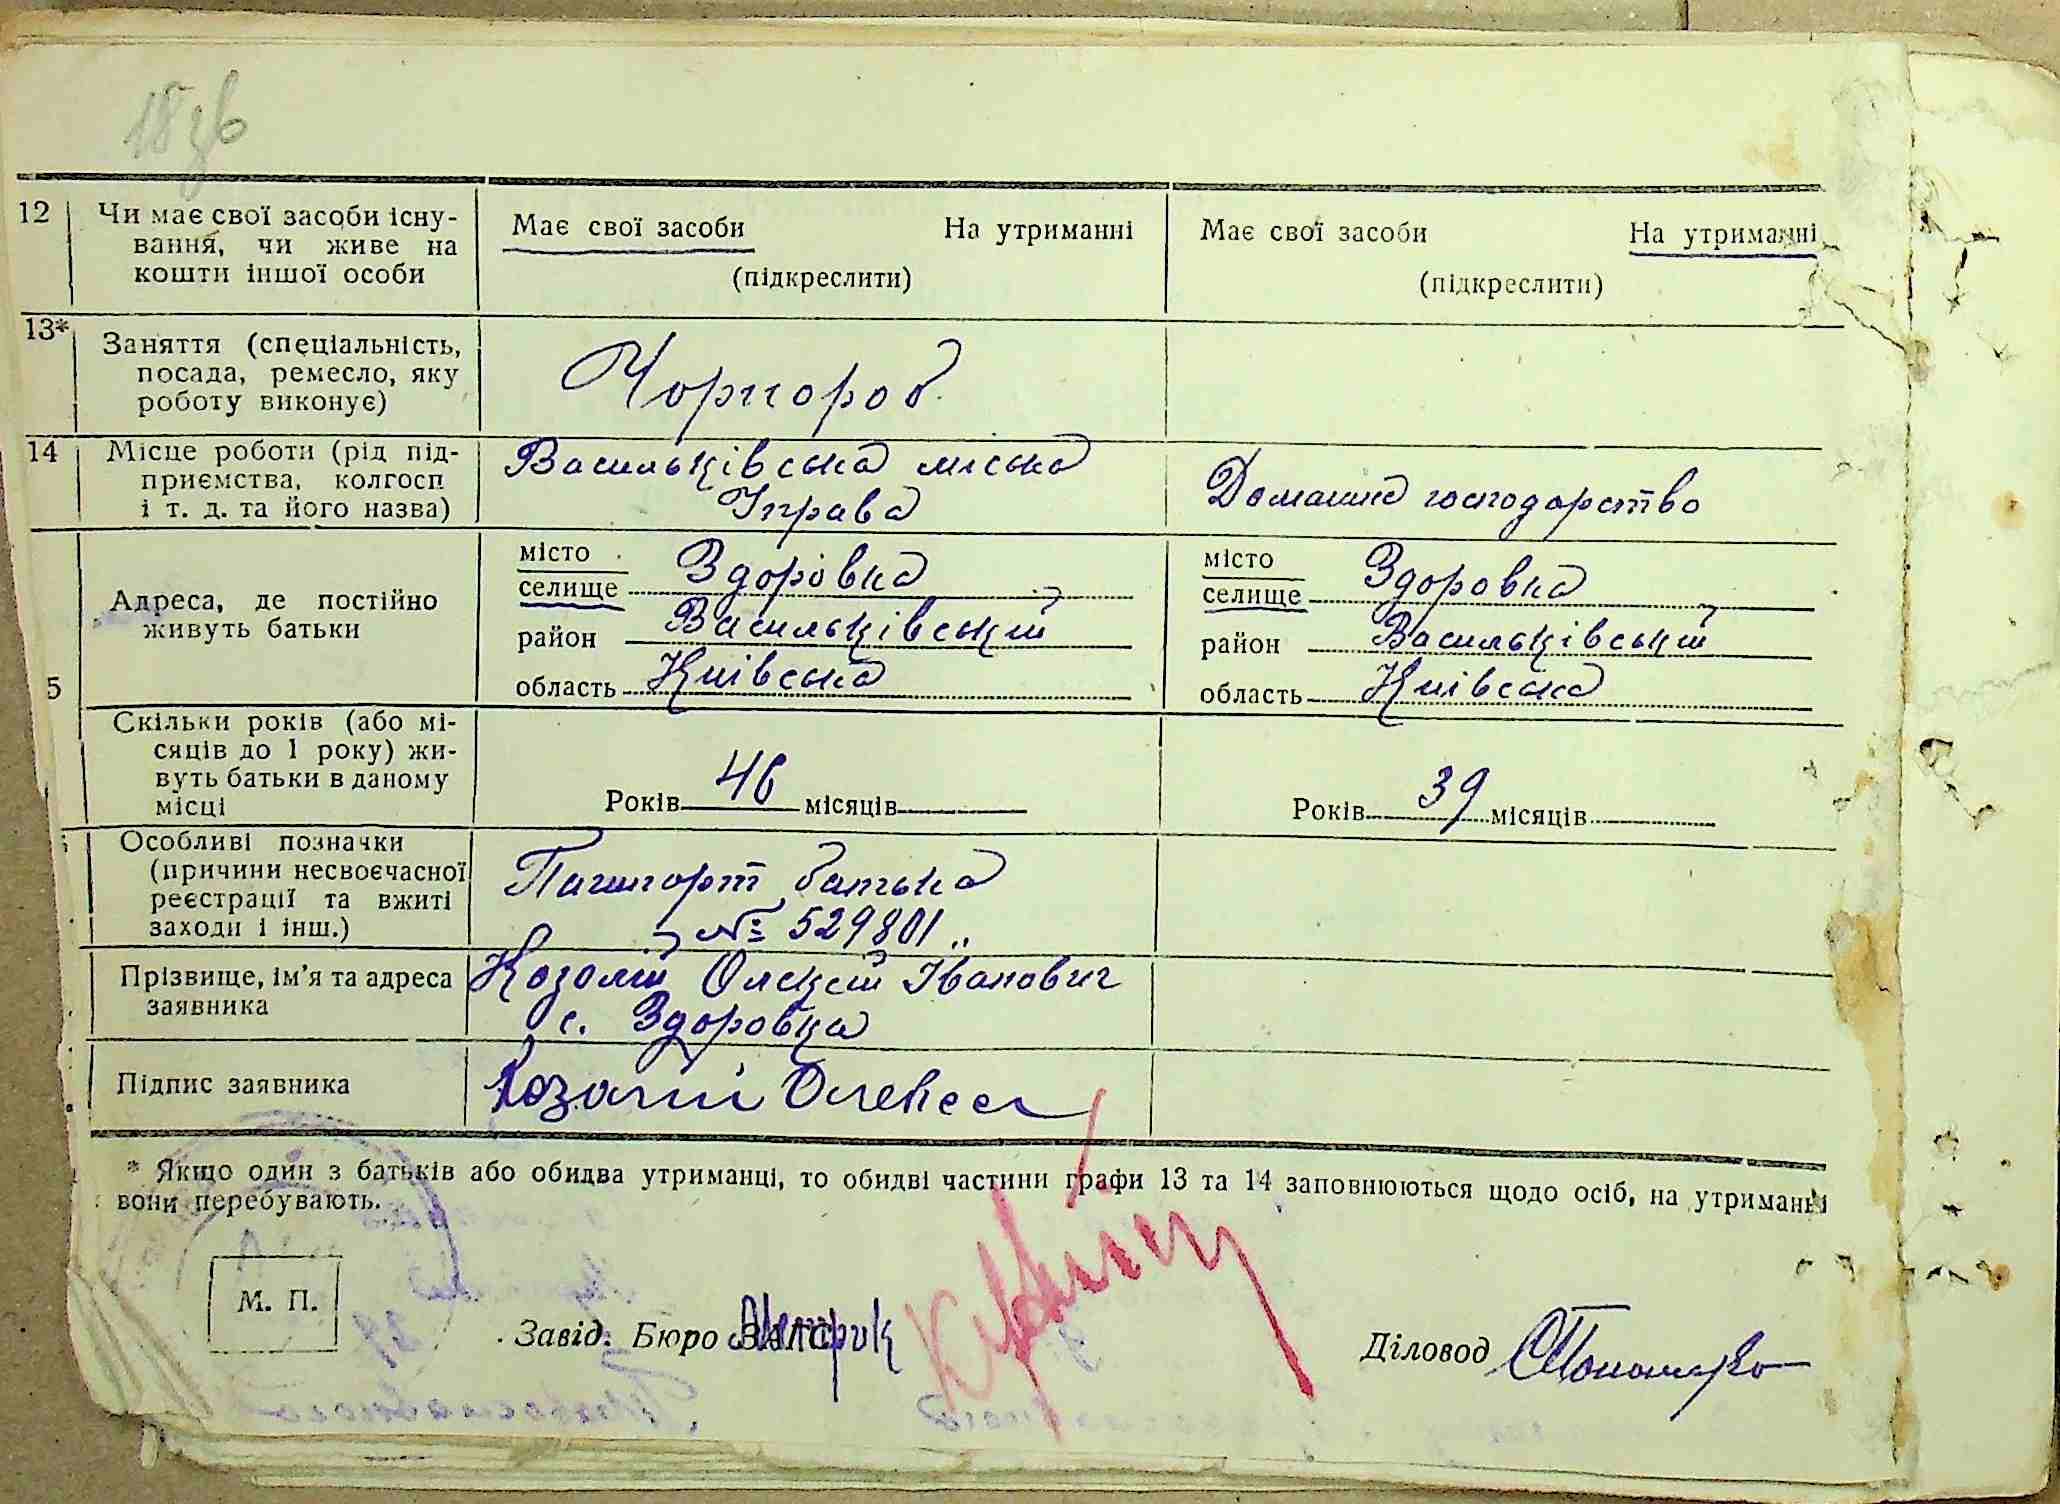 18зв
12 Чи має свої засоби існу-
вання, чи живе на
кошти іншої особи
Має свої засоби На утриманні
(підкреслити)
Має свої засоби На утриманні
(підкреслити)
13* Заняття (спеціальність,
посада, ремесло, яку
роботу виконує)
Чорнороб
14 Місце роботи (рід під-
приємства, колгосп
і т. д. та його назва)
Васильківська міська
Управа
Домашнє господарство
5 Адреса, де постійно
живуть батьки
місто
селище Здоровка
район Васильківський
область Київська
місто
селище Здоровка
район Васильківський
область Київська
Скільки років (або мі-
сяців до 1 року) жи-
вуть батьки в даному
місці
Років 46 місяців
Років 39 місяців
Особливі позначки
(причини несвоєчасної
реєстрації та вжиті
заходи і інш.)
Пашпорт батька
№ 529801
Прізвище, ім'я та адреса
заявника
Козолій Олексій Іванович
с. Здоровка
Підпис заявника
* Якщо один з батьків або обидва утриманці, то обидві частини графи 13 та 14 заповнюються щодо осіб, на утриманні
вони перебувають.
М. П.
Завід. Бюро ЗАГС
Діловод